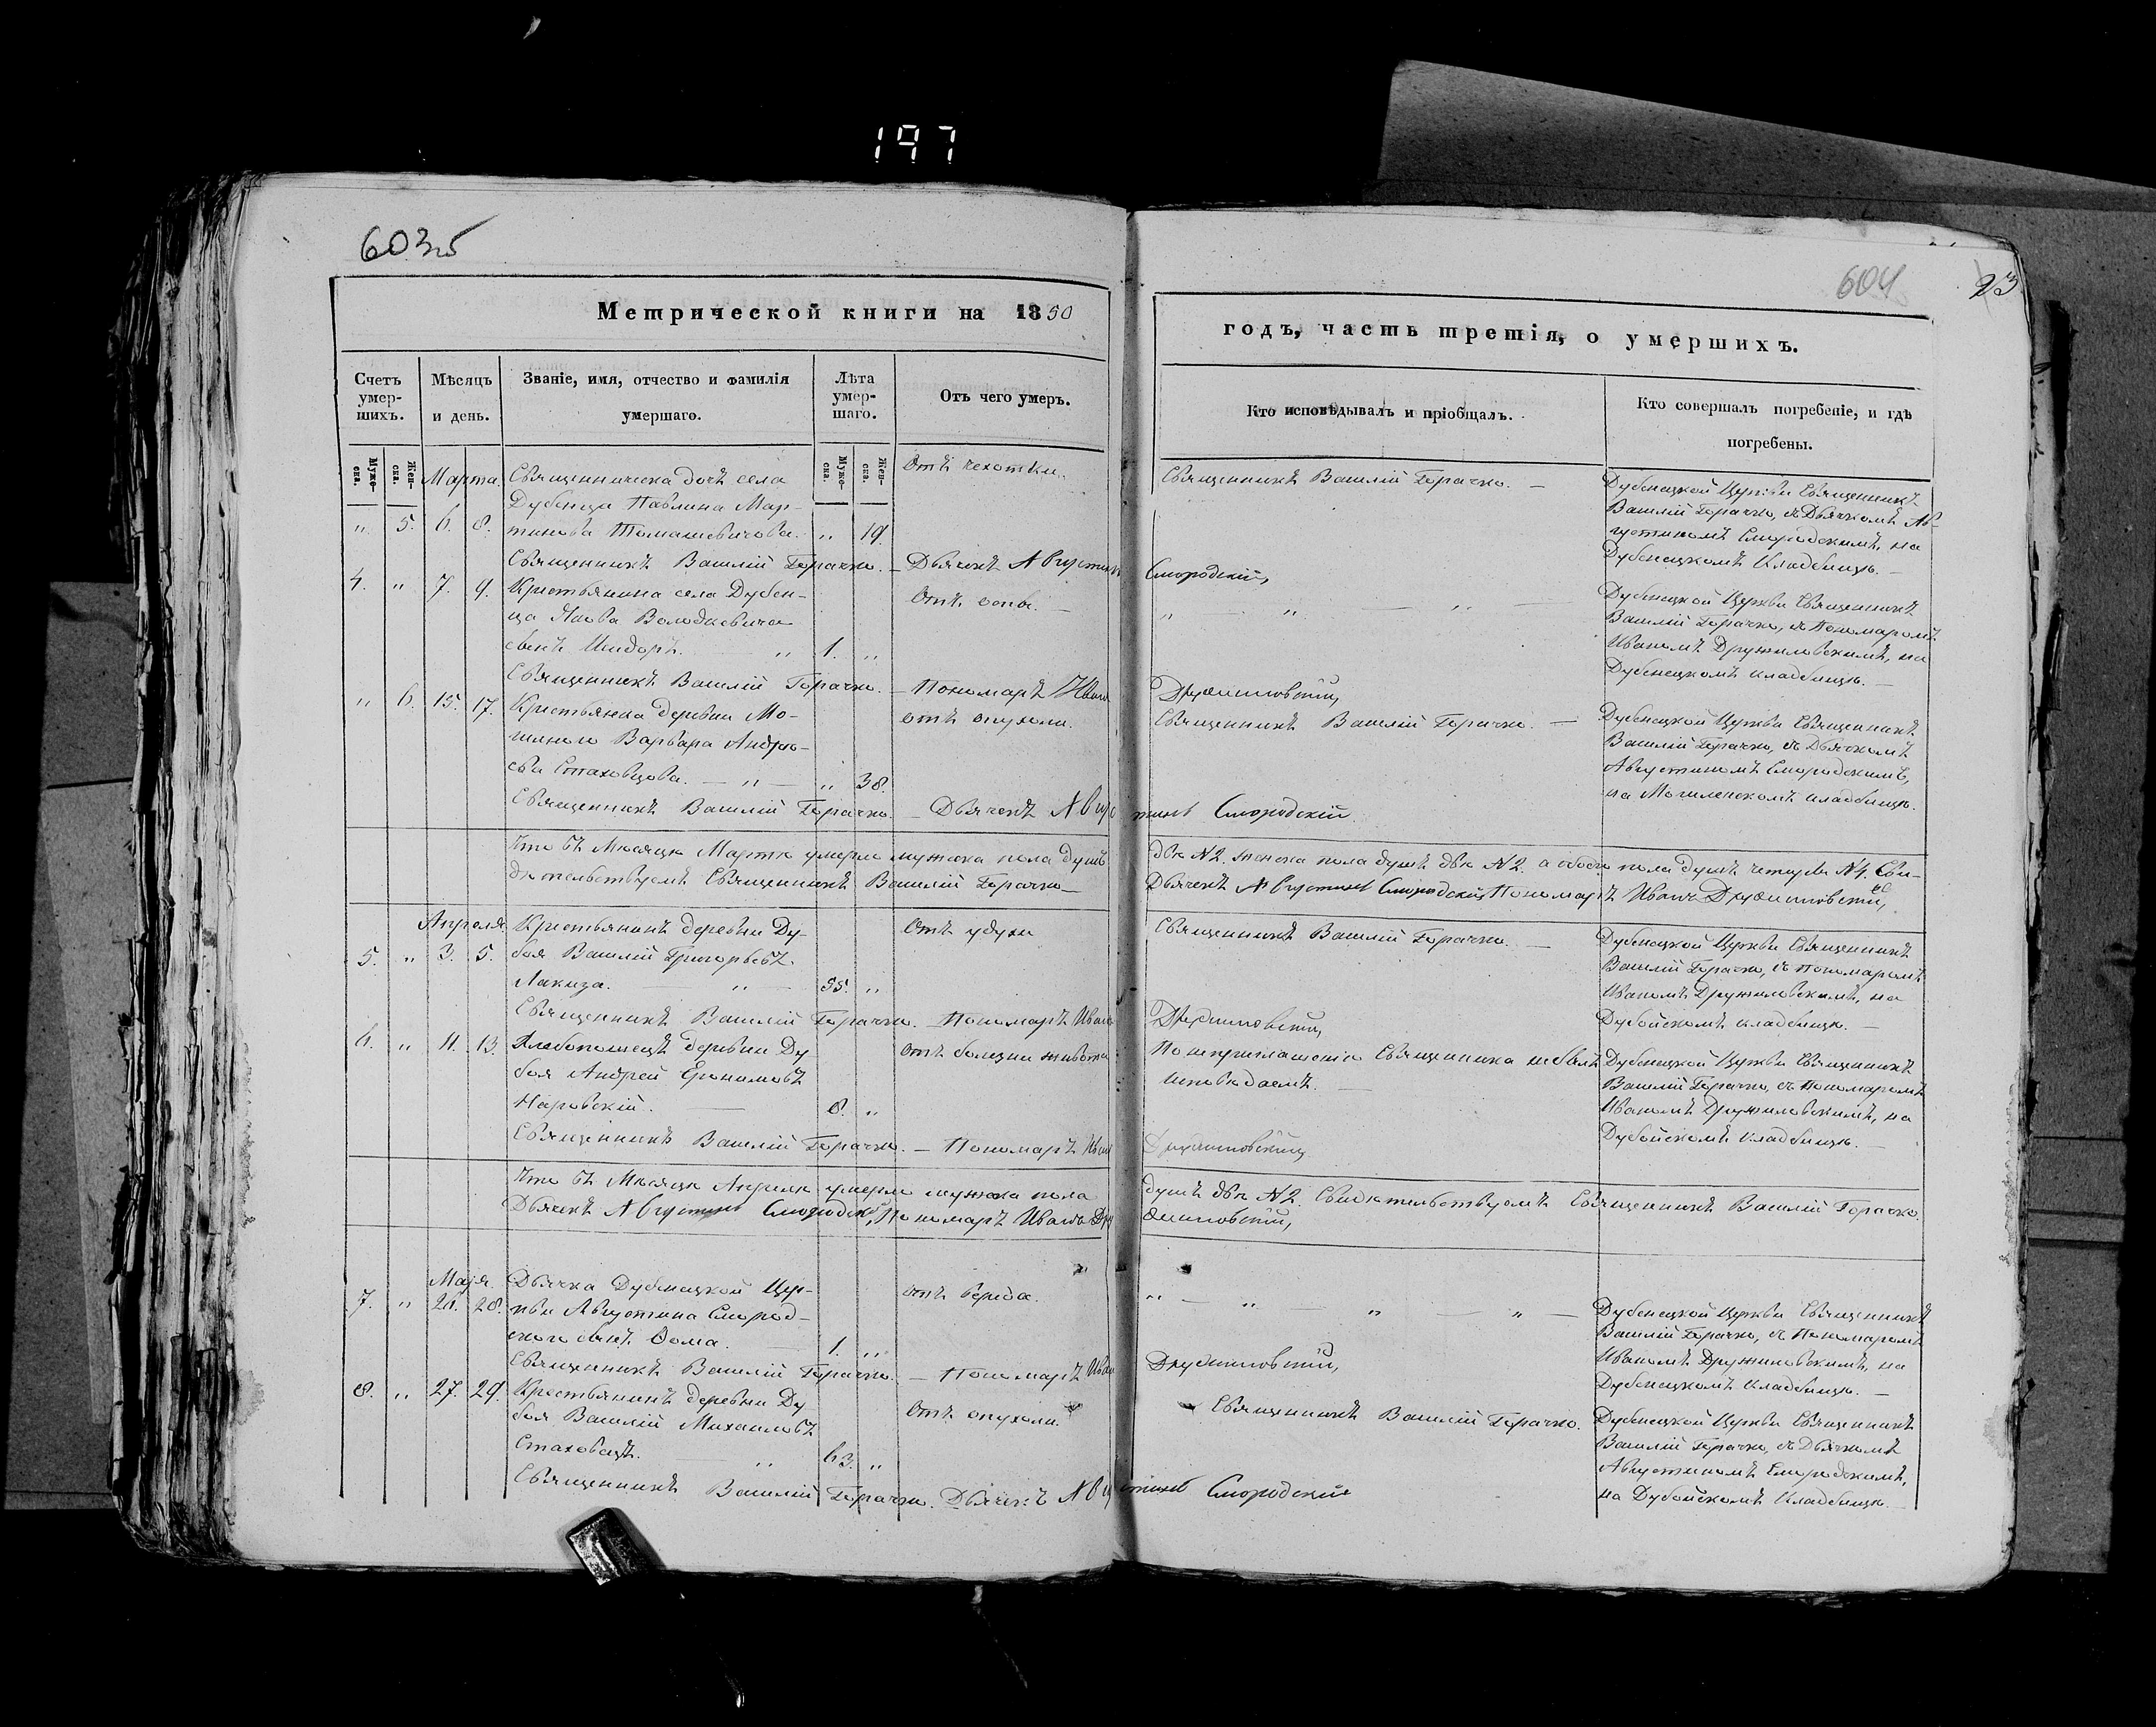 197
603об
604
23
Метрической книги на 1850
годъ, часть третія, о умершихъ.
Счетъ умер-шихъ.
Мѣсяцъ и день.
Званіе, имя, отчество и фамилія умершаго.
Лѣта умер-шаго.
Отъ чего умеръ.
Кто исповѣдывалъ и пріобщалъ.
Кто совершалъ погребеніе, и гдѣ погребены.
Муже-ска.
Жен-ска.
Муже-ска.
Жен-ска.
Марта. Священническа дочь села
Дубенца Павлина Мар-
„ 5. 6. 8. тинова Томашевичова. „ 19.
Отъ чехотки.
Священникъ Василій Горачко. —
Дубенецкой Церкви Священникъ
Василій Горачко, съ Дьячкомъ Ав-
густиномъ Смородскимъ, на
Дубенецкомъ Кладбищѣ. —
Священникъ Василій Горачко. — Дьячекъ Августинъ Смородскій,
4. „ 7. 9. Крестьянина села Дубен-
ца Якова Володкевича
сынъ Исидоръ. — „ 1. „
Отъ оспы. —
„ — „ — „ —
Дубенецкой Церкви Священникъ
Василій Горачко, съ Пономаромъ
Иваномъ Дружиловскимъ, на
Дубенецкомъ кладбищѣ. —
Священникъ Василій Горачко. — Пономаръ Иванъ Дружиловскій,
„ 6. 15. 17. Крестьянка деревни Мо-
Варвара Андрѣ-
ева Стаховцова. — „ — „ 38.
отъ опухоли.
Священникъ Василій Горачко. —
Дубенецкой Церкви Священникъ
Василій Горачко, съ Дьячкомъ
Августиномъ Смородскимъ,
на кладбищѣ.
Священникъ Василій Горачко. — Дьячекъ Августинъ Смородскій.
Что въ Мѣсяцѣ Мартѣ умерло мужеска пола душъ двѣ №2. женска пола душъ двѣ №2. а обоего пола душъ четыре №4. Сви-
дѣтельствуемъ Священникъ Василій Горачко — Дьячекъ Августинъ Смородскій Пономаръ Иванъ Дружиловскій,
Апреля. Крестьянинъ деревни Ду-
5. „ 3. 5. боя Василій Григорьевъ
Лакиза. — „ — 55. „
Отъ удухи
Священникъ Василій Горачко. —
Дубенецкой Церкви Священникъ
Василій Горачко, съ Пономаромъ
Иваномъ Дружиловскимъ, на
Дубойскомъ кладбищѣ. —
Священникъ Василій Горачко. — Пономаръ Иванъ Дружиловскій,
6. „ 11. 13. Хлебопашецъ деревни Ду-
боя Андрей Еронимовъ
Наровскій. — 8. „
отъ болезни живота
По неприглашенію Священника небылъ
исповѣдаемъ. —
Дубенецкой Церкви Священникъ
Василій Горачко, съ Пономаромъ
Иваномъ Дружиловскимъ, на
Дубойскомъ кладбищѣ. —
Священникъ Василій Горачко. — Пономаръ Иванъ Дружиловскій,
Что въ Мѣсяцѣ Апрелѣ умерло мужеска пола душъ двѣ №2. Свидѣтельствуемъ Священникъ Василій Горачко.
Дьячекъ Августинъ Смородскій, Пономаръ Иванъ Дружиловскій,
Маія. Дьячка Дубенецкой Цер-
7. „ 26. 28. кви Августина Смород-
скаго сынъ Ѳома. 1. „
отъ вереда.
„ — „ „ — „ —
Дубенецкой Церкви Священникъ
Василій Горачко, съ Пономаромъ
Иваномъ Дружиловскимъ, на
Дубенецкомъ кладбищѣ. —
Священникъ Василій Горачко. — Пономаръ Иванъ Дружиловскій,
8. „ 27. 29. Крестьянинъ деревни Ду-
боя Василій Михаиловъ
Стаховецъ. — „ 63. „
Отъ опухоли.
Священникъ Василій Горачко.
Дубенецкой Церкви Священникъ
Василій Горачко, съ Дьячкомъ
Августиномъ Смородскимъ,
на Дубойскомъ Кладбищѣ.
Священникъ Василій Горачко. Дьячекъ Августинъ Смородскій